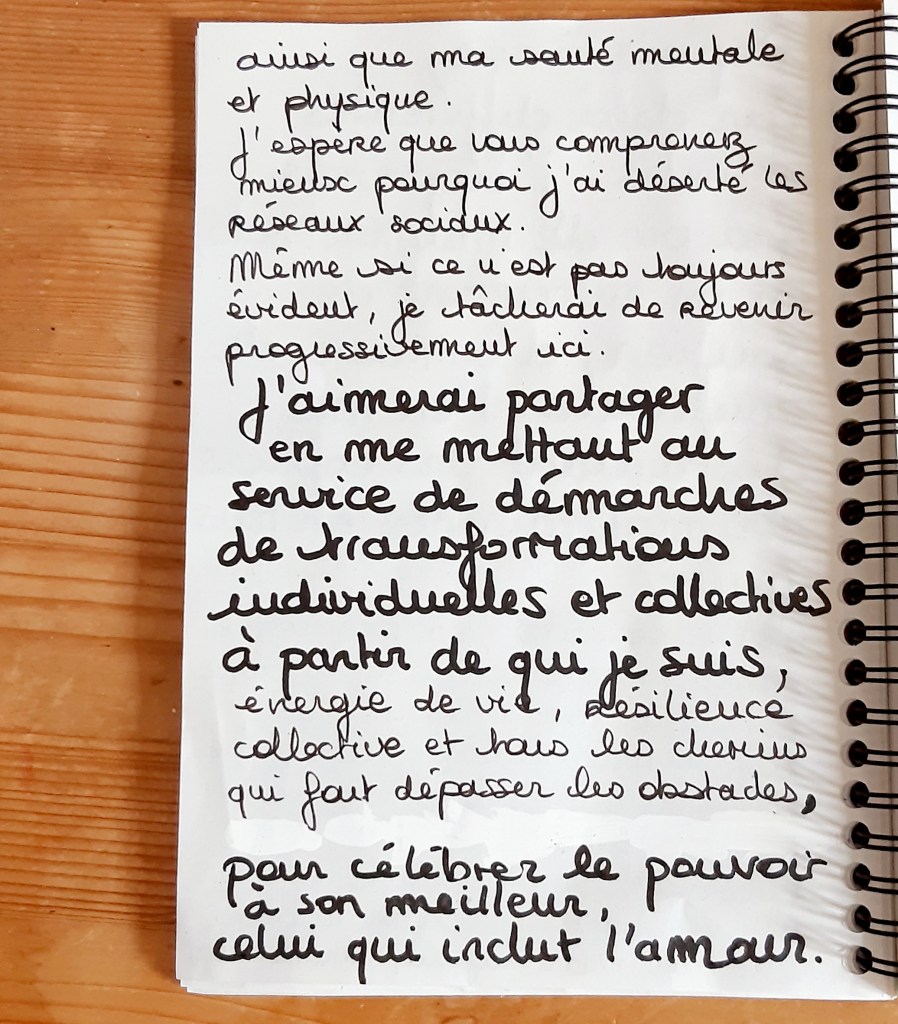 ainsi que ma santé mentale
et physique.
J'espère que vous comprenez
mieux pourquoi j'ai déserté les
réseaux sociaux.
Même si ce n'est pas toujours
évident, je tâcherai de revenir
progressivement ici.
J'aimerai partager
en me mettant au
service de démarches
de transformations
individuelles et collectives
à partir de qui je suis,
énergie de vie, résilience
collective et tous les chemins
qui font dépasser les obstacles,
pour célébrer le pouvoir
à son meilleur,
celui qui inclut l'amour.